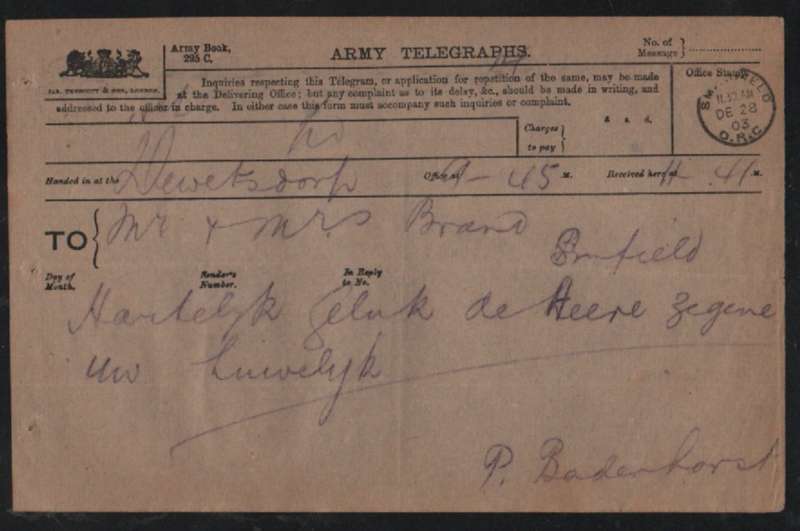 Army Book,
295 C.
ARMY TELEGRAPHS.
No. of
Message
JAS. TRUSCOTT & SON, LONDON.
Inquiries respecting this Telegram, or application for repetition of the same, may be made
at the Delivering Office; but any complaint as to its delay, &c., should be made in writing, and
addressed to the officer in charge. In either case this form must accompany such inquiries or complaint.
Office Stamp
11.42 AM
DE 28
03
O.R.C
Charges
to pay
£ s. d.
Handed in at the Dewetsdorp Office at 9-45 M. Received here at 11-41 M.
TO Mr & Mrs Brand
Day of
Month.
Sender's
Number.
In Reply
to No.
Hartelyk geluk de Heere zegene
uw huwelyk
P. Badenhorst